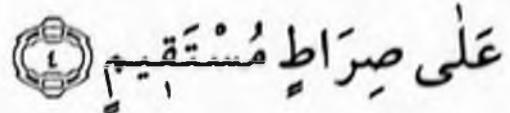 عَلٰى صِرَاطٍ مُسْتَقٖيمٍ ﴿٤﴾